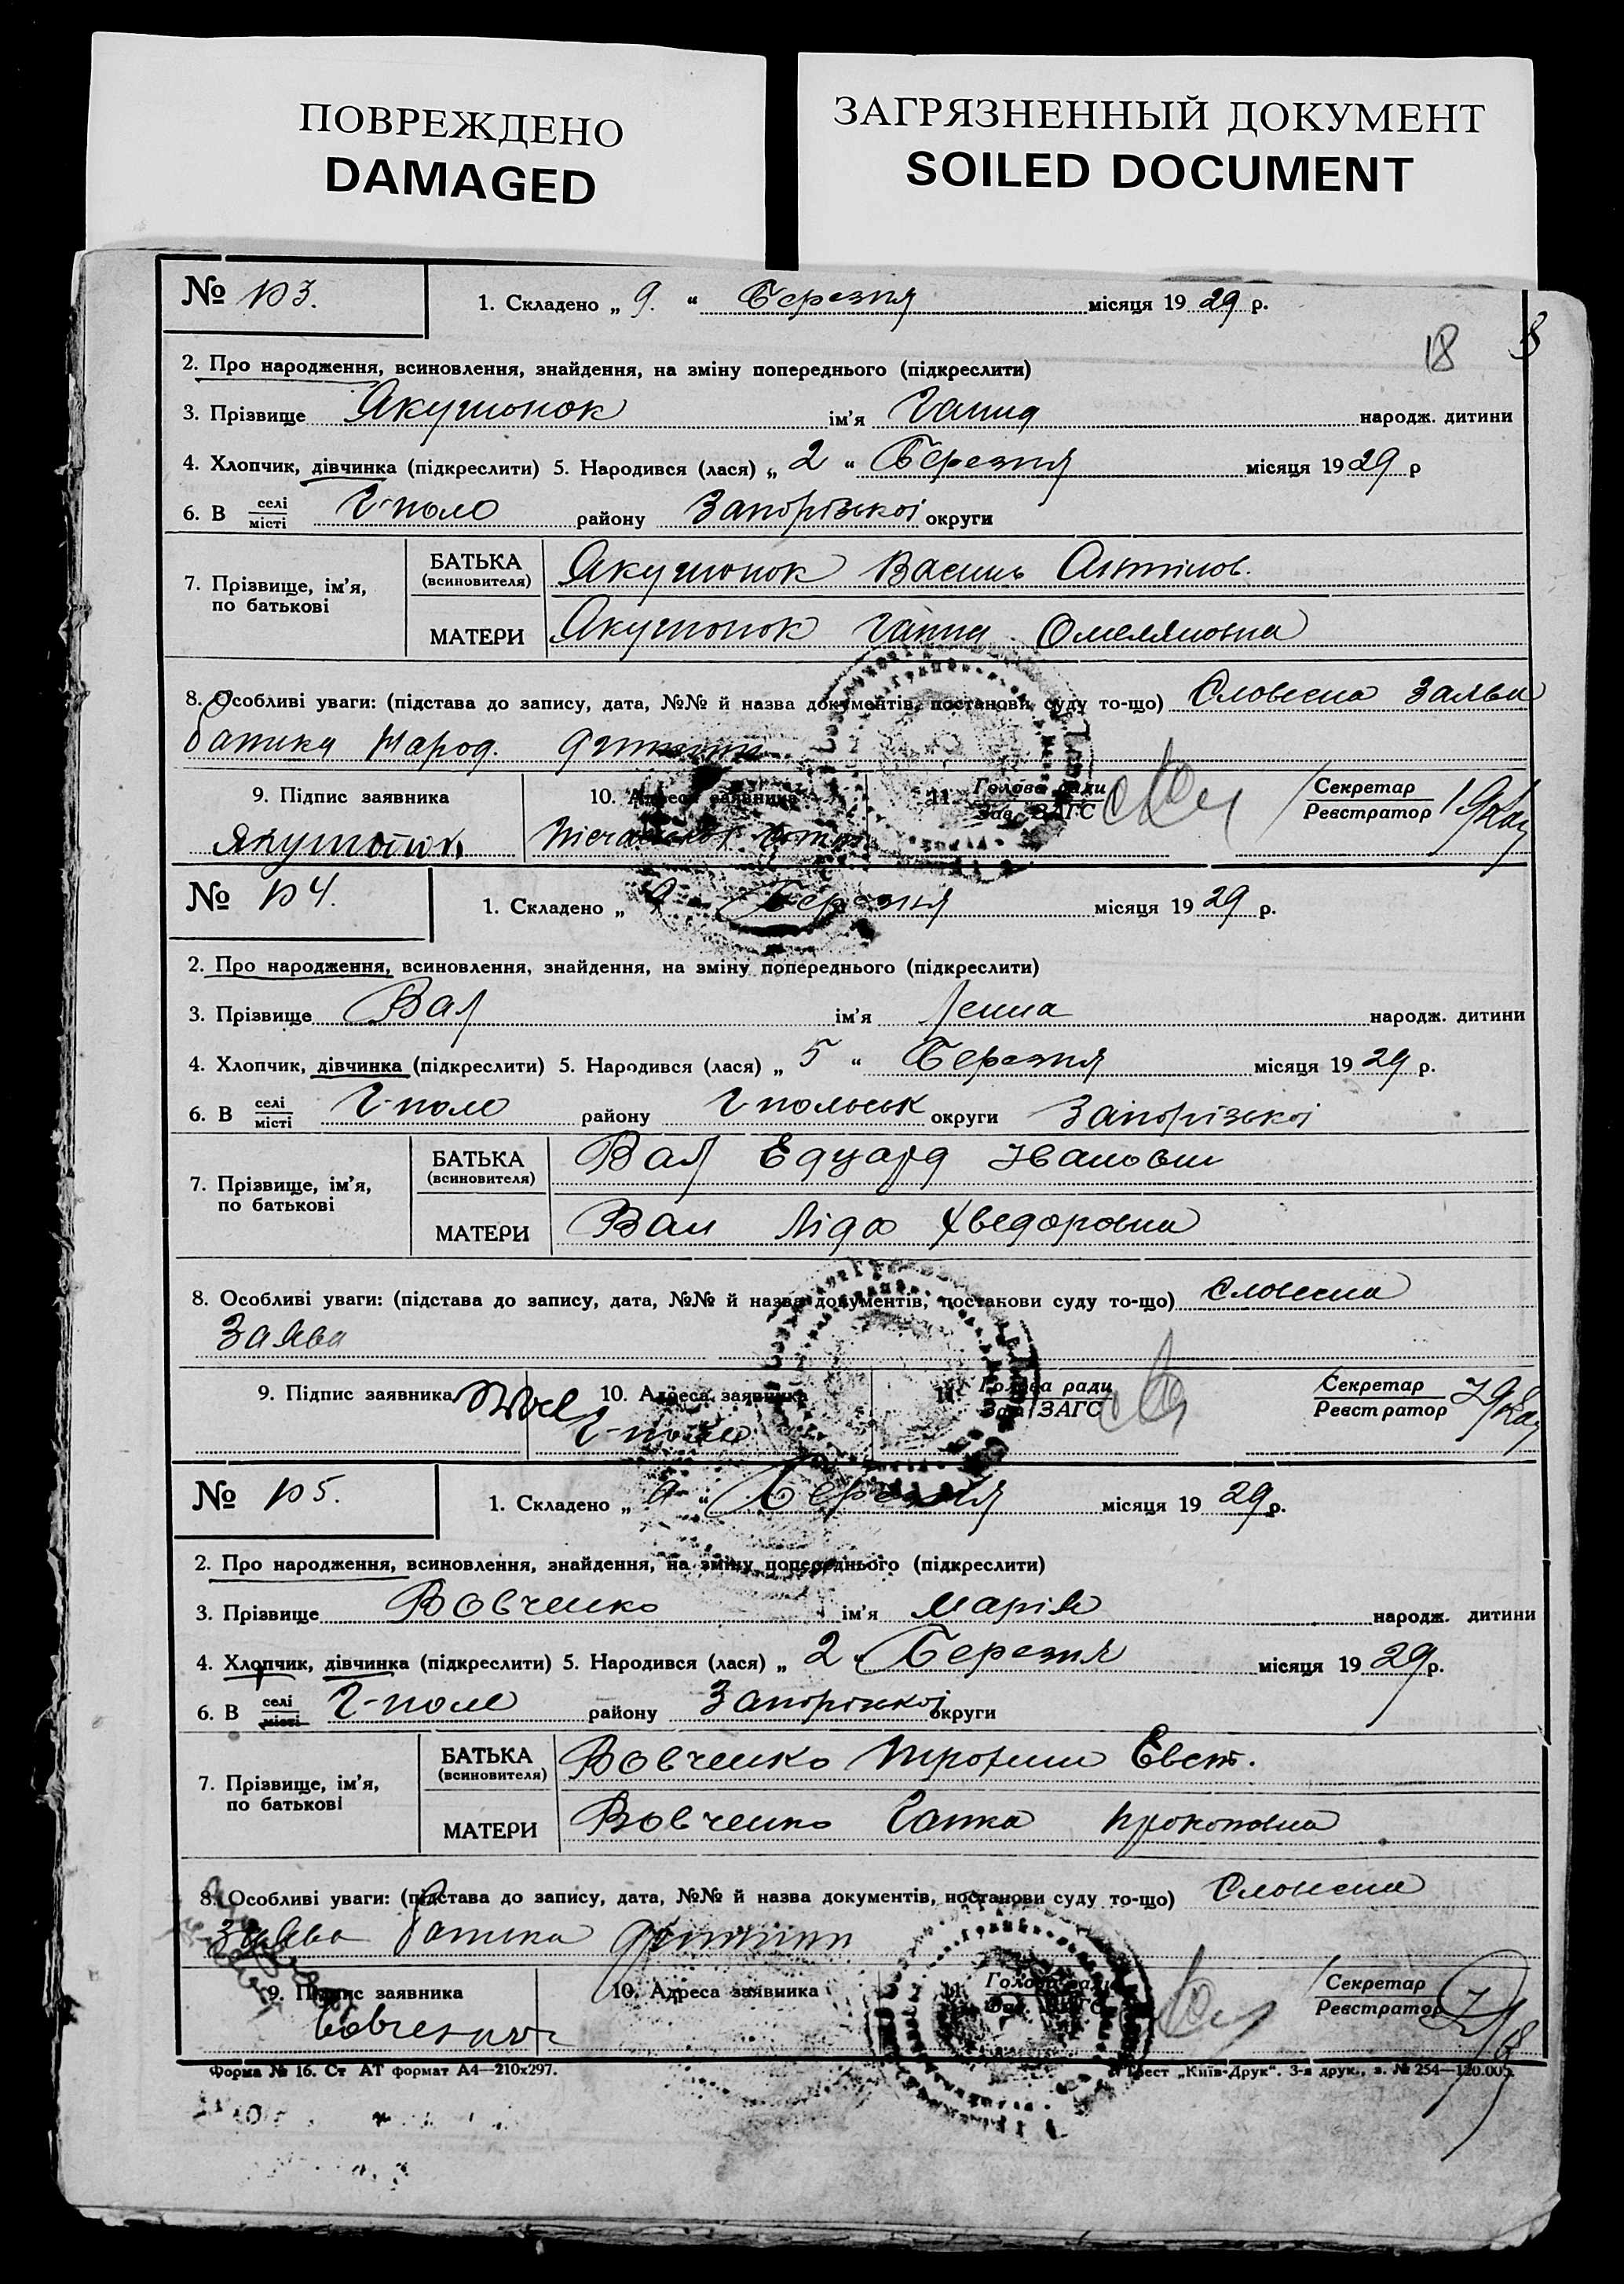 ПОВРЕЖДЕНО
DAMAGED
ЗАГРЯЗНЕННЫЙ ДОКУМЕНТ
SOILED DOCUMENT
№ 103. 1. Складено „ 9. “ Березня місяця 1929 р.
18
2. Про народження, всиновлення, знайдення, на зміну попереднього (підкреслити)
3. Прізвище ім’я Ганна народж. дитини
4. Хлопчик, дівчинка (підкреслити) 5. Народився (лася) „ 2 “ Березня місяця 1929 р
6. В селі/місті Г-поло району Запорізької округи
7. Прізвище, ім’я, по батькові
БАТЬКА (всиновителя) Василь
МАТЕРИ Ганна Омеляновна
8. Особливі уваги: (підстава до запису, дата, №№ й назва документів, постанови суду то-що) Словесна заява
батька народ. дитини
9. Підпис заявника 10. Адреса заявника 11. Голова ради/Зав. ЗАГС Секретар/Реєстратор
№ 104. 1. Складено „ 9 “ Березня місяця 1929 р.
2. Про народження, всиновлення, знайдення, на зміну попереднього (підкреслити)
3. Прізвище Вал ім’я народж. дитини
4. Хлопчик, дівчинка (підкреслити) 5. Народився (лася) „ 5 “ Березня місяця 1929 р.
6. В селі/місті Г-поло району Г-польськ округи Запорізької
7. Прізвище, ім’я, по батькові
БАТЬКА (всиновителя) Вал Едуард Іванович
МАТЕРИ Вал Ліда Хведоровна
8. Особливі уваги: (підстава до запису, дата, №№ й назва документів, постанови суду то-що) Словесна
Заява
9. Підпис заявника 10. Адреса заявника 11. Голова ради/Зав. ЗАГС Секретар/Реєстратор
Г-поло
№ 105. 1. Складено „ 9 “ Березня місяця 1929 р.
2. Про народження, всиновлення, знайдення, на зміну попереднього (підкреслити)
3. Прізвище Вовченко ім’я Марія народж. дитини
4. Хлопчик, дівчинка (підкреслити) 5. Народився (лася) „ 2 “ Березня місяця 1929 р.
6. В селі/місті Г-поле району Запорізької округи
7. Прізвище, ім’я, по батькові
БАТЬКА (всиновителя) Вовченко Трофим Евст.
МАТЕРИ Вовченко Ганна Прокоповна
8. Особливі уваги: (підстава до запису, дата, №№ й назва документів, постанови суду то-що) Словесна
заява батька дитини
9. Підпис заявника 10. Адреса заявника 11. Голова ради/Зав. ЗАГС Секретар/Реєстратор
Форма № 16. Ст АТ формат А4—210х297. Трест „Київ-Друк“. 3-я друк., з. № 254—120.005